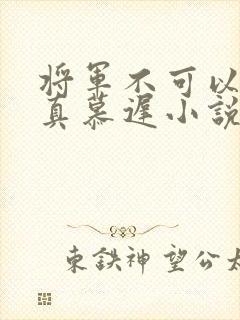 将軍不可以
真慕遅小說
東鉄神望公太